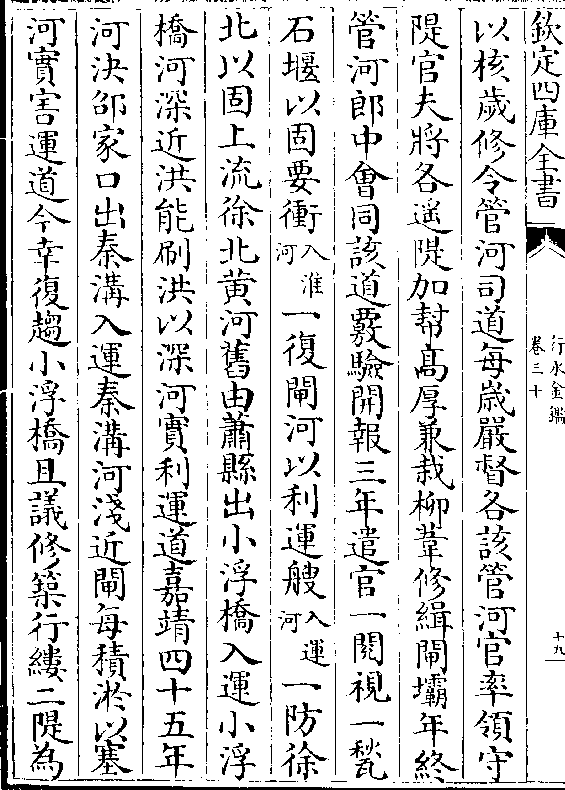 欽定四庫全書
行水金鑑
卷三十
十九
以核歲修令管河司道每歲嚴督各該管河官率領守
隄官夫將各遥隄加幇高厚兼栽柳葦修緝閘壩年終
管河郎中會同該道覈驗開報三年遣官一閲視一甃
石堰以固要衝入淮河一復閘河以利運艘入運河一防徐
北以固上流徐北黄河舊由蕭縣出小浮橋入運小浮
橋河深近洪能刷洪以深河實利運道嘉靖四十五年
河決邵家口出秦溝入運秦溝河淺近閘每積淤以塞
河實害運道今幸復趨小浮橋且議修築行縷二隄為